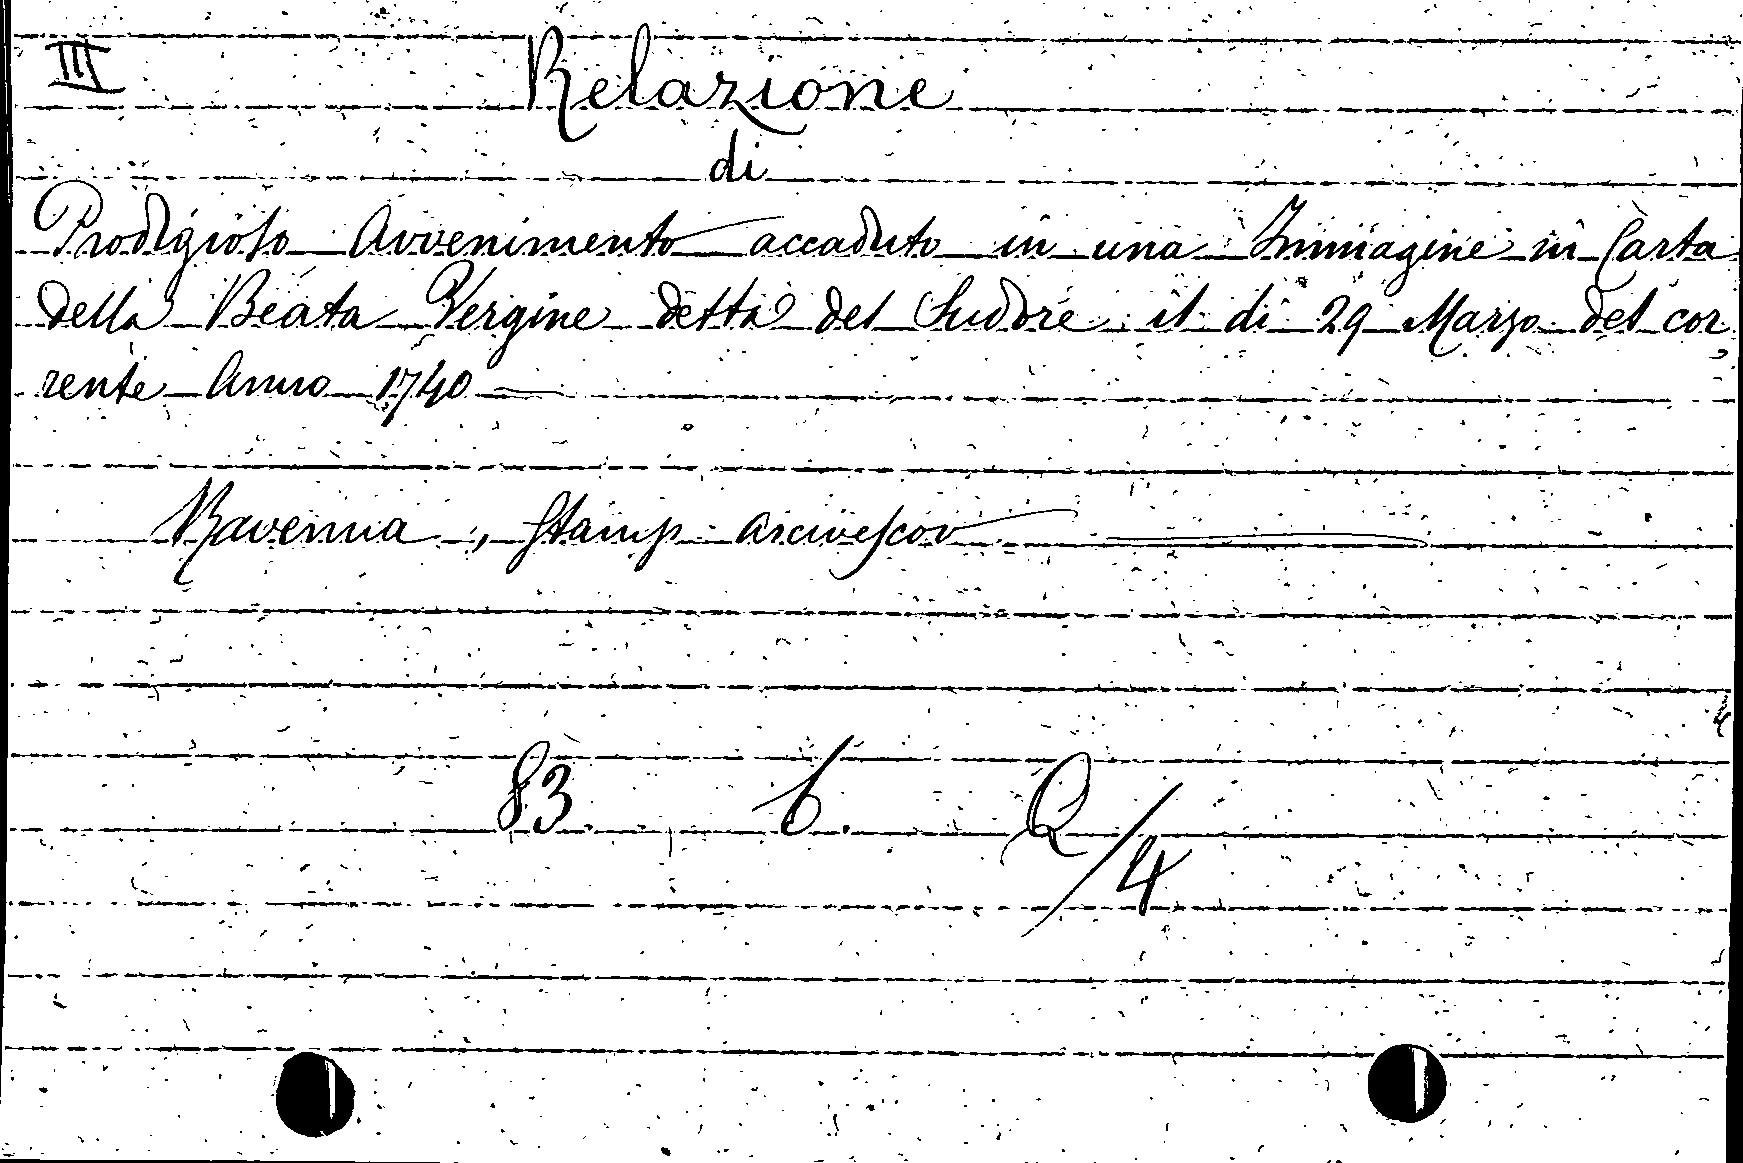 III
Relazione
di
Prodigioso Avvenimento accaduto in una Immagine in Carta
della Beata Vergine detta del Sudore il di 29 Marzo del cor
rente Anno 1740
Ravenna, Stamp. arcivescov
83. b. Q/4